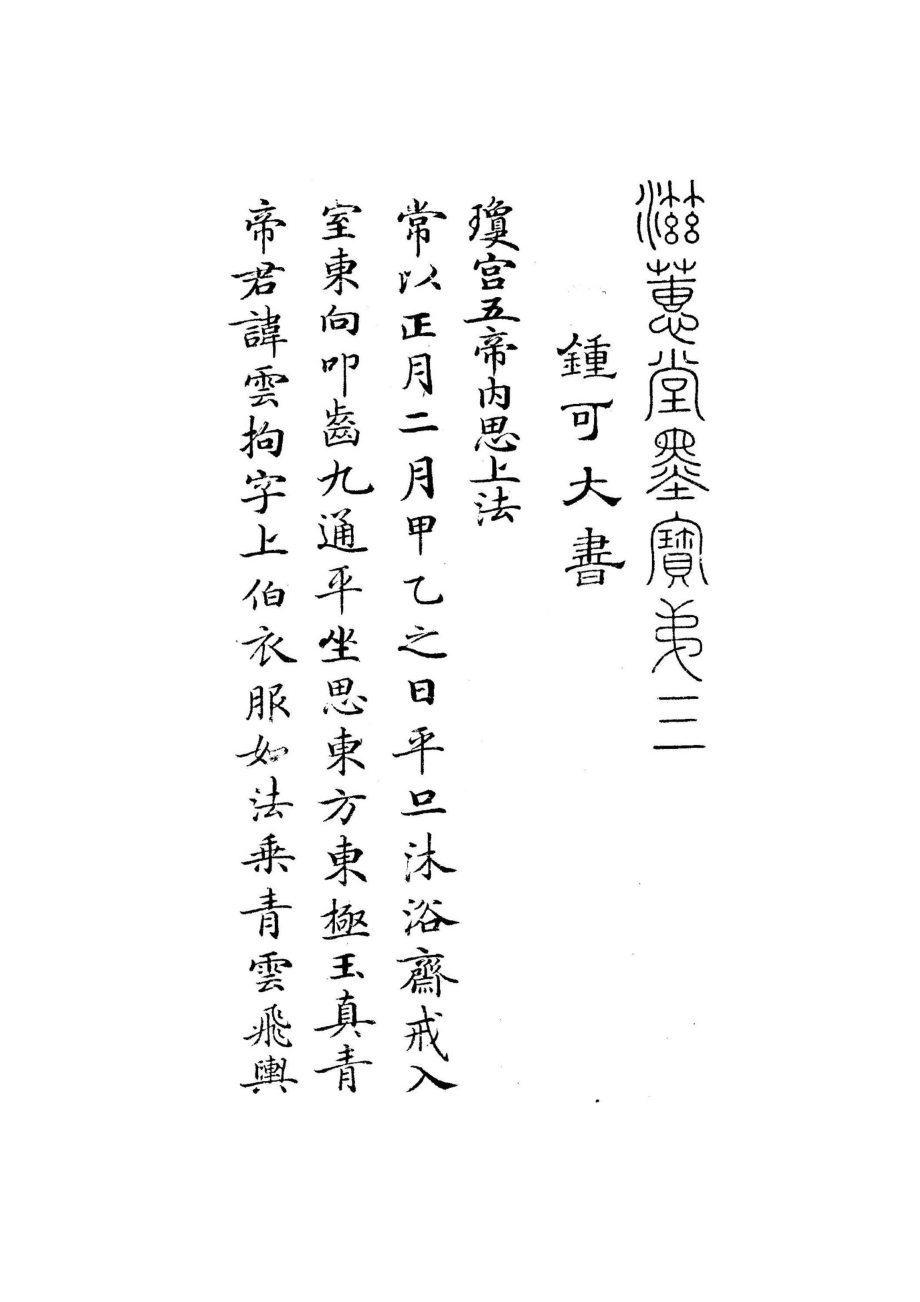 滋蕙堂墨寶弟三
鍾可大書
瓊宮五帝內思上法
常以正月二月甲乙之日平旦沐浴齋戒入
室東向叩齒九通平坐思東方東極玉真青
帝君諱雲拘字上伯衣服如法乗青雲飛輿